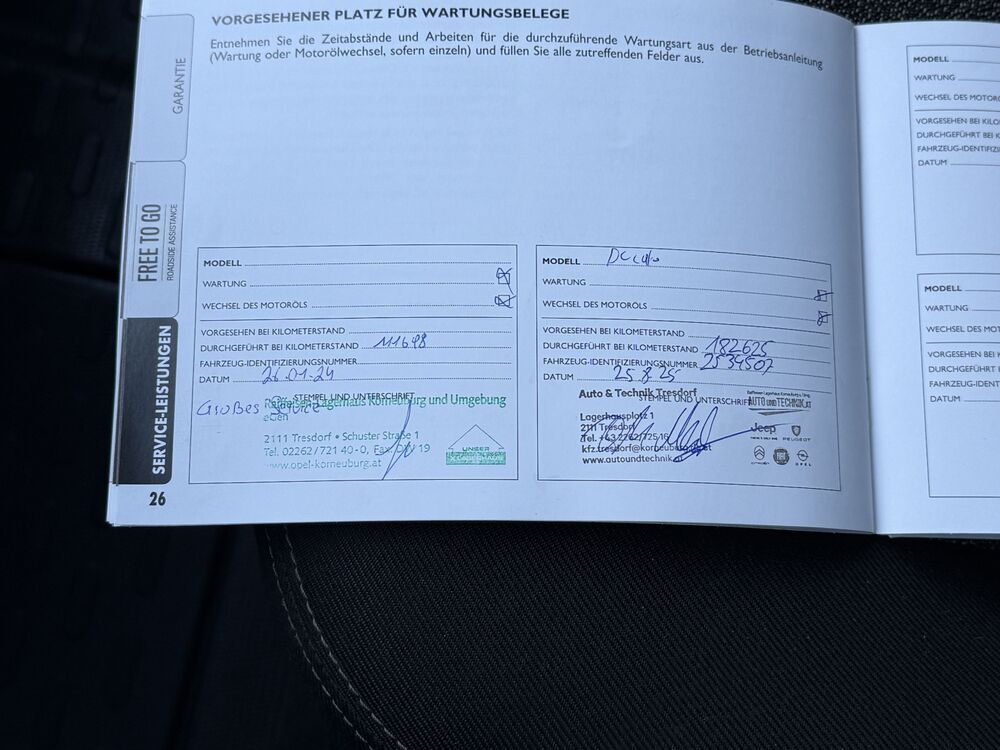 VORGESEHENER PLATZ FÜR WARTUNGSBELEGE
Entnehmen Sie die Zeitabstände und Arbeiten für die durchzuführende Wartungsart aus der Betriebsanleitung
(Wartung oder Motorölwechsel, sofern einzeln) und füllen Sie alle zutreffenden Felder aus.
GARANTIE
FREE TO GO
ROADSIDE ASSISTANCE
SERVICE-LEISTUNGEN
26
MODELL
WARTUNG
WECHSEL DES MOTORÖLS
VORGESEHEN BEI KILOMETERSTAND
DURCHGEFÜHRT BEI KILOMETERSTAND 111698
FAHRZEUG-IDENTIFIZIERUNGSNUMMER
DATUM 26.01.24
STEMPEL UND UNTERSCHRIFT
Großes Service
Raiffeisen-Lagerhaus Korneuburg und Umgebung
eGen
2111 Tresdorf • Schuster Straße 1
Tel. 02262/721 40-0, Fax 19
www.opel-korneuburg.at
UNSER
X LAGERHAUS
MODELL
WARTUNG
WECHSEL DES MOTORÖLS
VORGESEHEN BEI KILOMETERSTAND
DURCHGEFÜHRT BEI KILOMETERSTAND 182625
FAHRZEUG-IDENTIFIZIERUNGSNUMMER 2534507
DATUM 25.8.25
STEMPEL UND UNTERSCHRIFT
Auto & Technik Tresdorf
Lagerhausplatz 1
2111 Tresdorf
Tel. +43 2262/72516
kfz.tresdorf@korneuburg.at
www.autoundtechnik
AUTO UND TECHNIK.AT
Jeep
PEUGEOT
CITROËN
FIAT
OPEL
MODELL
WARTUNG
WECHSEL DES MOTORÖ
VORGESEHEN BEI KILO
DURCHGEFÜHRT BEI K
FAHRZEUG-IDENTIFIZI
DATUM
MODELL
WARTUNG
WECHSEL DES MOT
VORGESEHEN BEI K
DURCHGEFÜHRT
FAHRZEUG-IDENT
DATUM